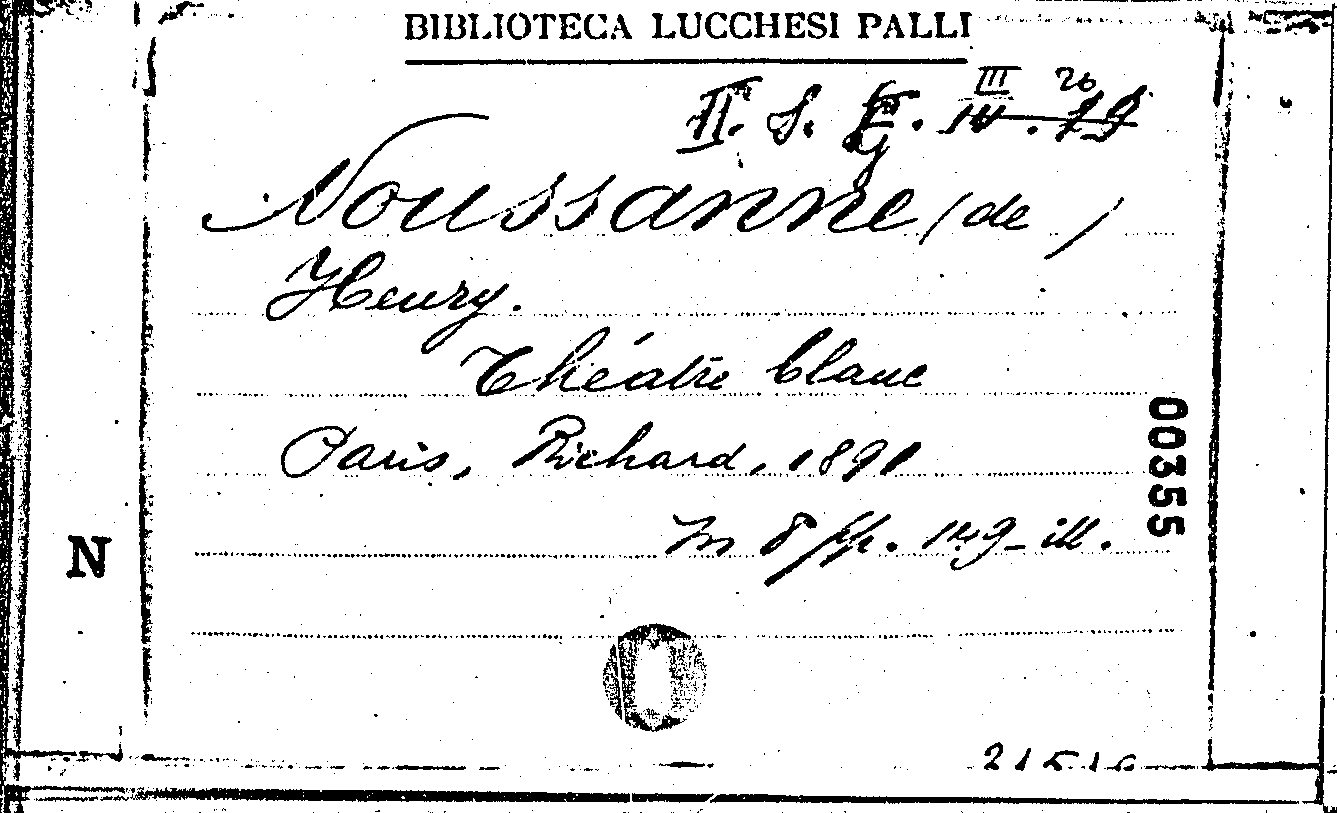 BIBLIOTECA LUCCHESI PALLI
III 26
II. S.
Noussanne (de)
Henry.
Théatre blanc
Paris, Richard, 1891
In 8 pp. 149 - ill.
00355
N